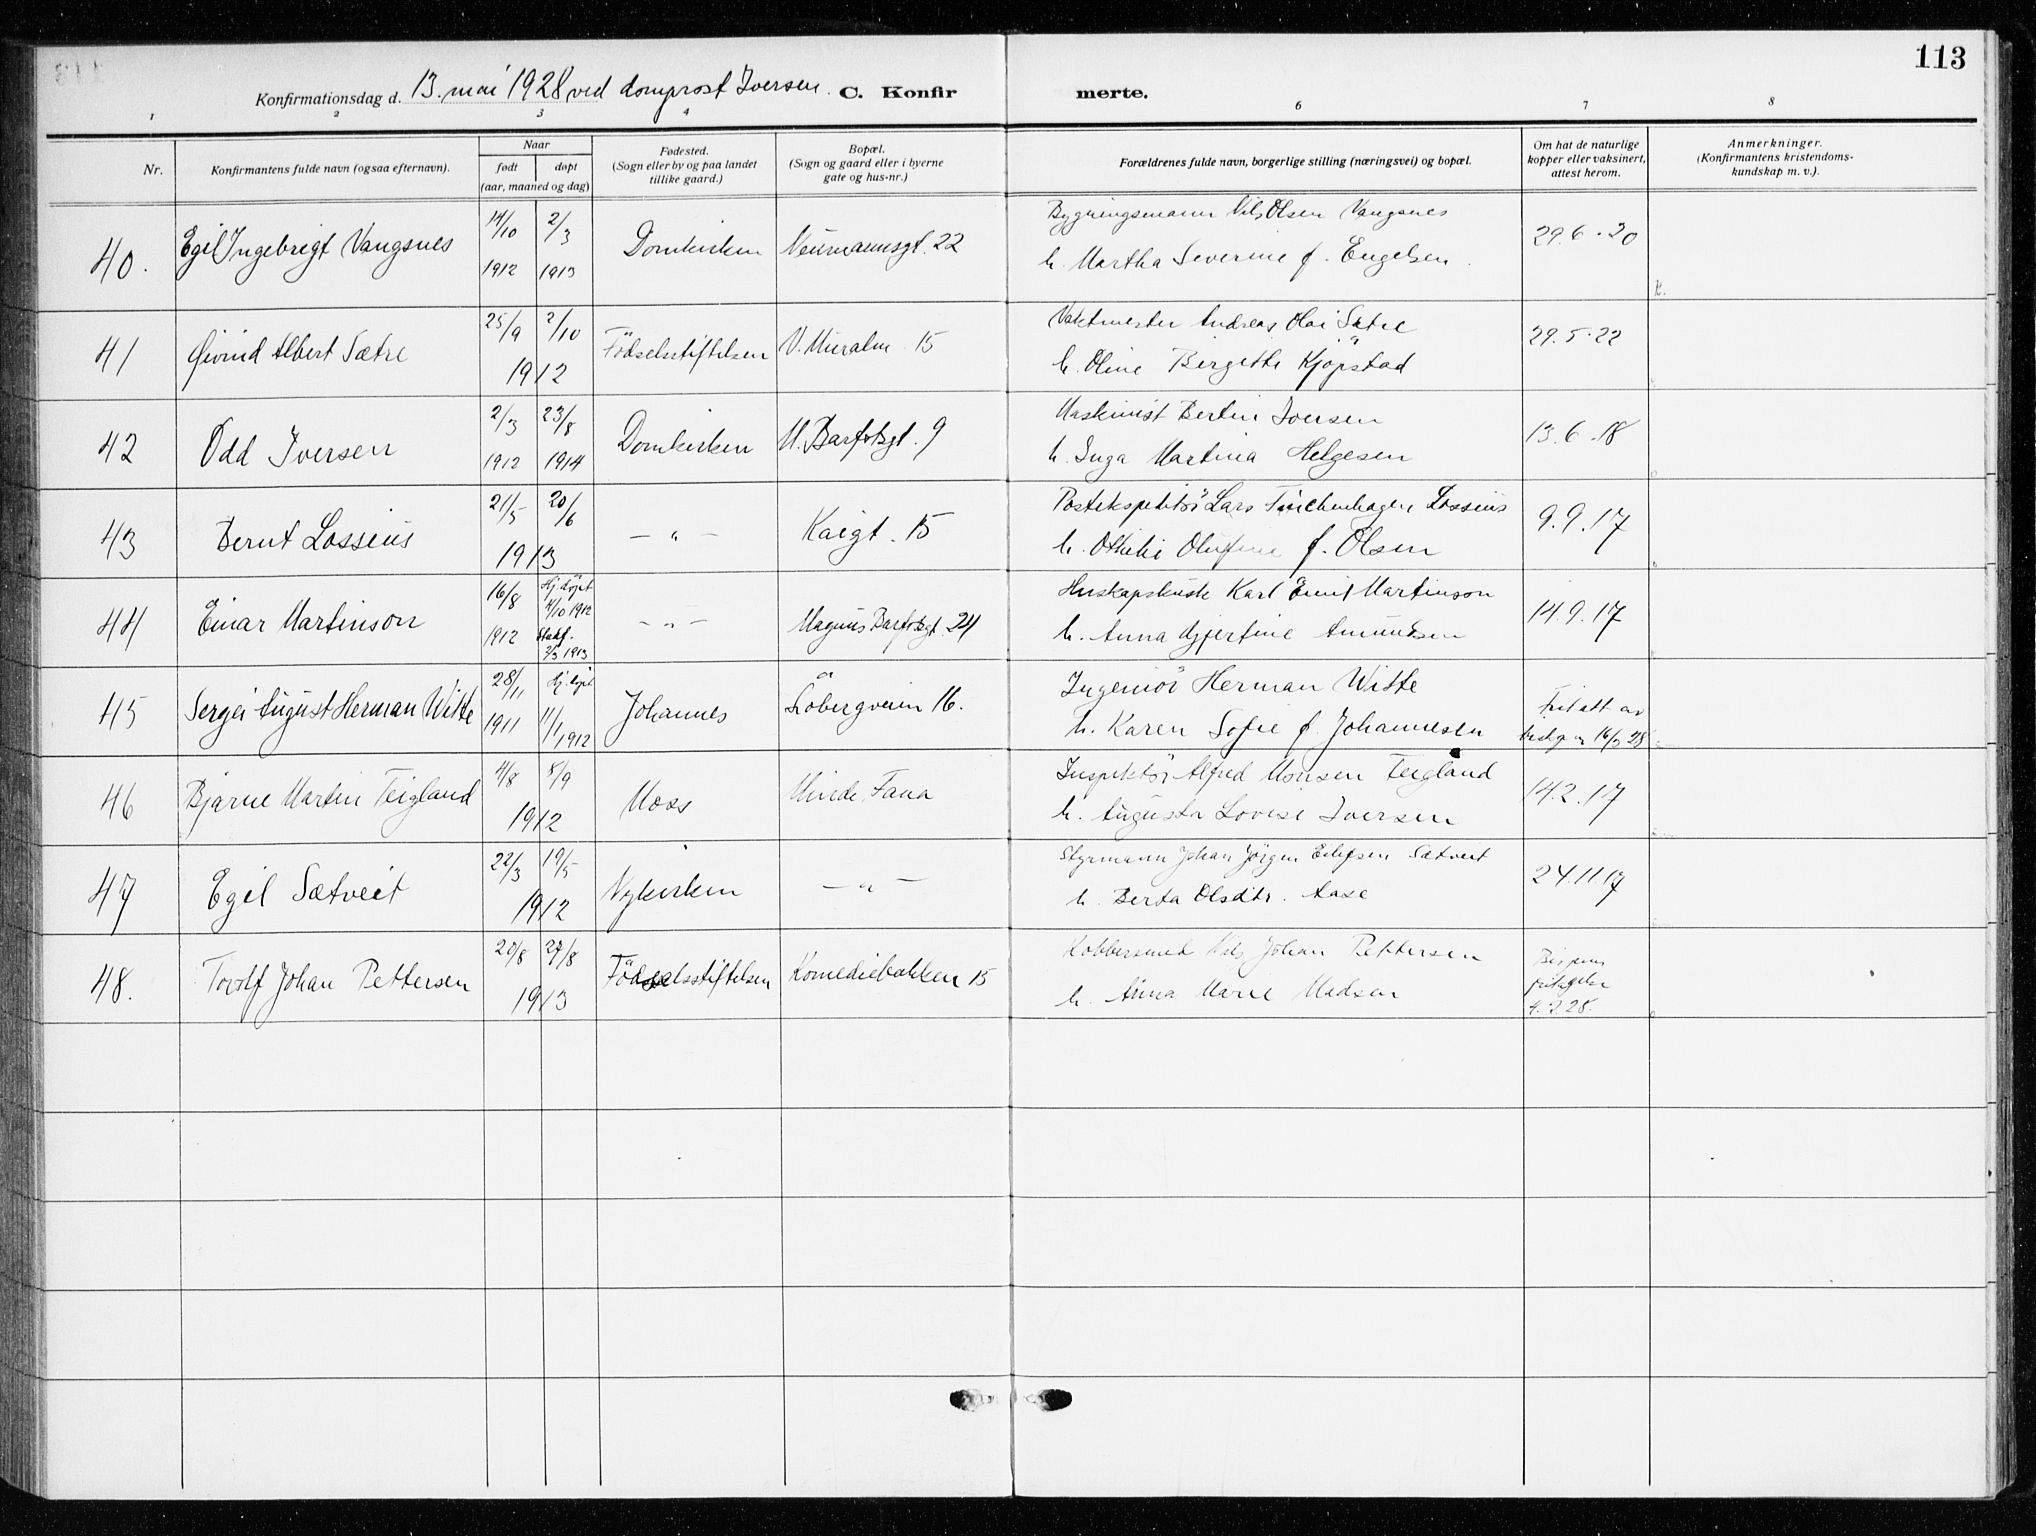 113
Konfirmationsdag d. 13. mai 1928 ved domprost Iversen. C. Konfirmerte.
1 2 3 4 6 7 8
Nr.
Konfirmantens fulde navn (ogsaa efternavn).
Naar
født døpt
(aar, maaned og dag)
Fødested.
(Sogn eller by og paa landet
tillike gaard.)
Bopæl.
(Sogn og gaard eller i byerne
gate og hus-nr.)
Forældrenes fulde navn, borgerlige stilling (næringsvei) og bopæl.
Om hat de naturlige
kopper eller vaksinert,
attest herom.
Anmerkninger.
(Konfirmantens kristendoms-
kundskap m. v.).
40. Egil Ingebrigt Vangsnes 14/10 1912 2/3 1913 Domkirken Neumannsgt. 22
Bygningsmann Nils Olsen Vangsnes
h. Martha Severine f. Engelsen
29.6.20
41 Øivind Albert Sætre 25/9 2/10 1912 Födselsstiftelsen V. Muralm. 15
Vaktmester Andreas Olai Sætre
h. Oline Birgitte Kjöpstad
29.5.22
42 Odd Iversen 2/3 1912 23/8 1914 Domkirken M. Barfotsgt. 9
Maskinist Bertin Iversen
h. Inga Martina Helgesen
13.6.18
43 Bernt Lossius 21/5 20/6 1913 — " — Kaigt. 15
Postekspeditör Lars Finckenhagen Lossius
h. Othelie Olufine f. Olsen
9.9.17
44 Einar Martinson 16/8 1912 Hj.döpt 4/10 1912 Stadf. 2/3 1913 — " — Magnus Barfotsgt. 24
Karl Emil Martinson
h. Anna Gjertine Amundsen
14.9.17
45 Sergei August Herman Witte 28/11 1911 Hj.döpt 11/1 1912 Johannes Låbergveien 16.
Ingeniör Herman Witte
h. Karen Sofie f. Johannesen
Fritatt av
16/3 28
46 Bjarne Martin Teigland 4/8 8/9 1912 Moss Minde, Fana
Inspektör Alfred Monsen Teigland
h. Augusta Lovise Iversen
14.2.17
47 Egil Sætveit 22/3 19/5 1912 Nykirken — " —
Styrmann Johan Jörgen Eilefsen Sætveit
h. Berta Olsdtr. Aase
24.11.17
48. Torolf Johan Pettersen 20/8 27/8 1913 Födselsstiftelsen Komediebakken 15
Kobbersmed Nils Johan Pettersen
h. Anna Marie Madsen
Bispens
fritagelse
4.3.28.